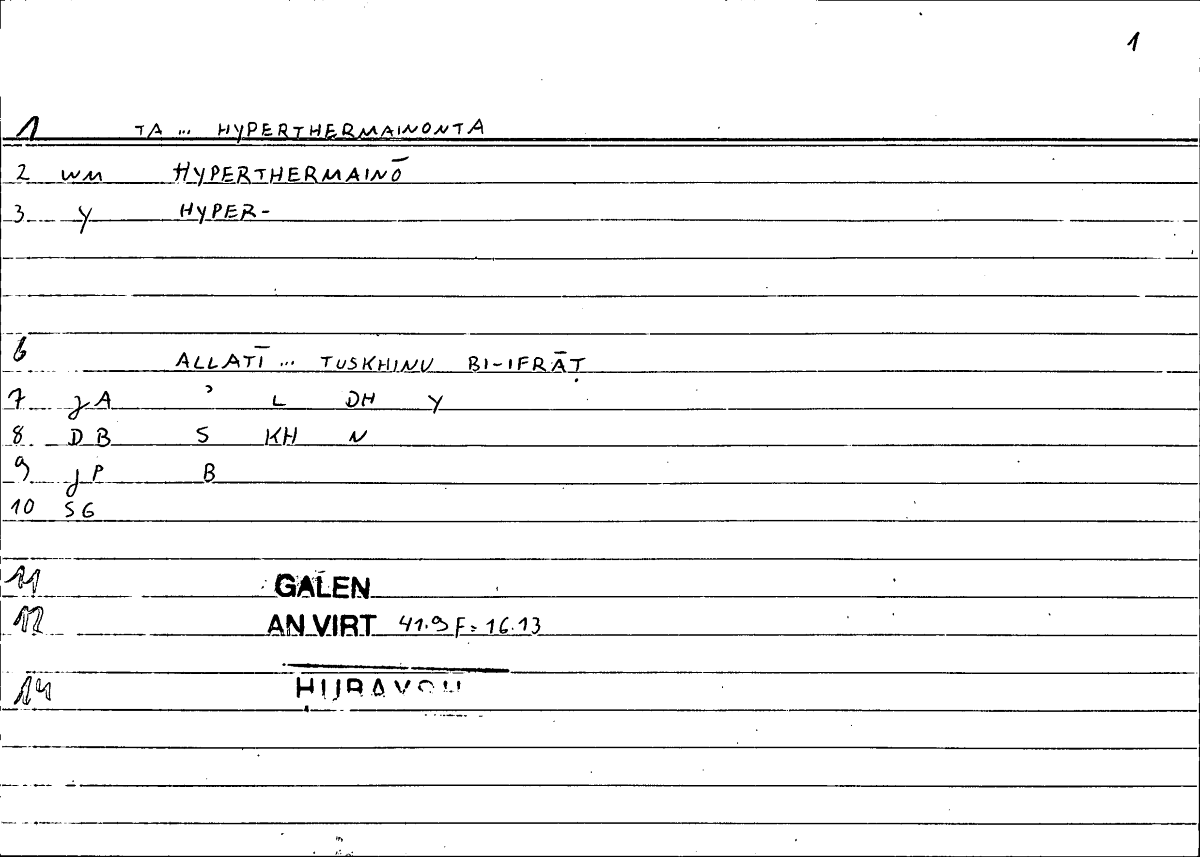 1
1 TA ... HYPERTHERMAINONTA
2 WM HYPERTHERMAINŌ
3 Y HYPER-
6 ALLATĪ ... TUSKHINU BI-IFRĀṬ
7 JA ʾ L DH Y
8 DB S KH N
9 JP B
10 SG
11 GALEN
12 AN VIRT 41.9 F: 16.13
14